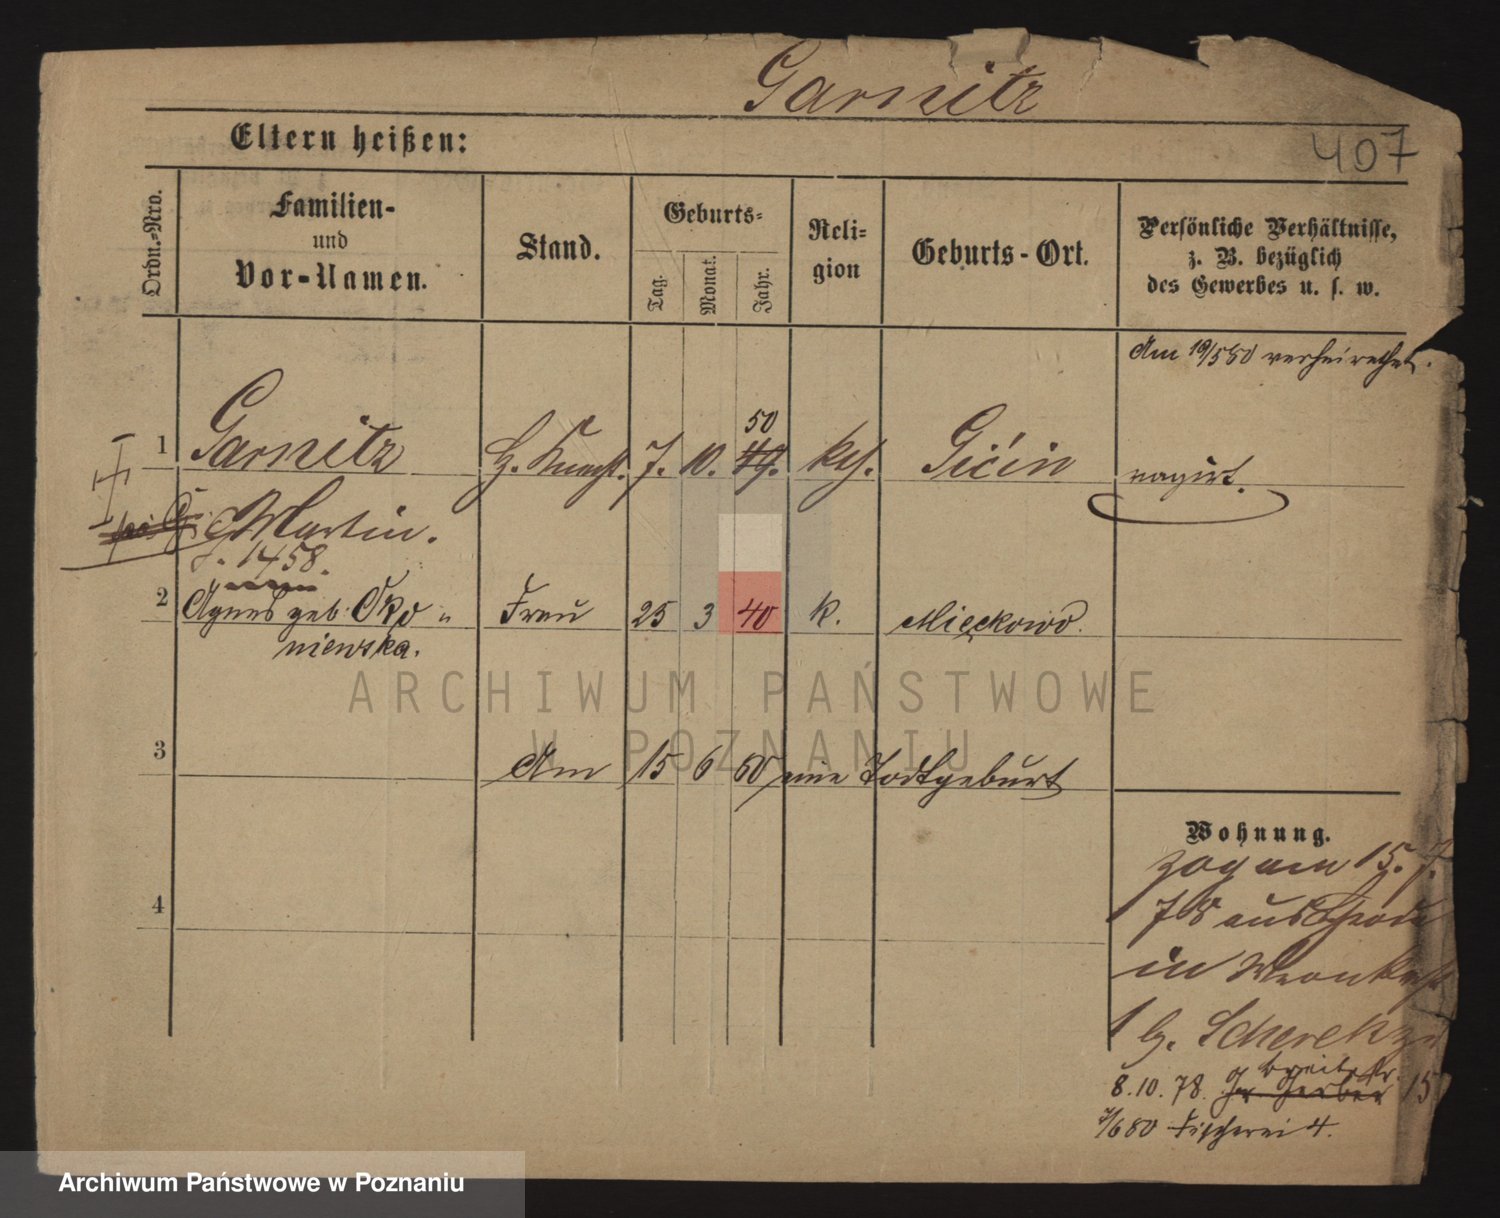 Garnitz
407
Eltern heißen:
Ordn.-Nro.
Familien-
und
Vor-Namen.
Stand.
Geburts-
Tag.
Monat.
Jahr.
Reli-
gion
Geburts-Ort.
Persönliche Verhältnisse,
z. B. bezüglich
des Gewerbes u. s. w.
Am 19/5 80 verheirathet.
1 Garnitz 7. 10. 49. 50 kth. Gićin
Martin.
J. 1458.
2 Agnes geb. Oko-
niewska. Frau 25 3 40 k. Mięckowo.
3 Am 15 6 60 eine Todtgeburt
4
Wohnung.
zog am 15. 7.
78 aus
in
1 b.
8.10.78. Gr. Gerber 15
breitestr.
7/6 80 Fischerei 4.
ARCHIWUM PAŃSTWOWE
W POZNANIU
Archiwum Państwowe w Poznaniu